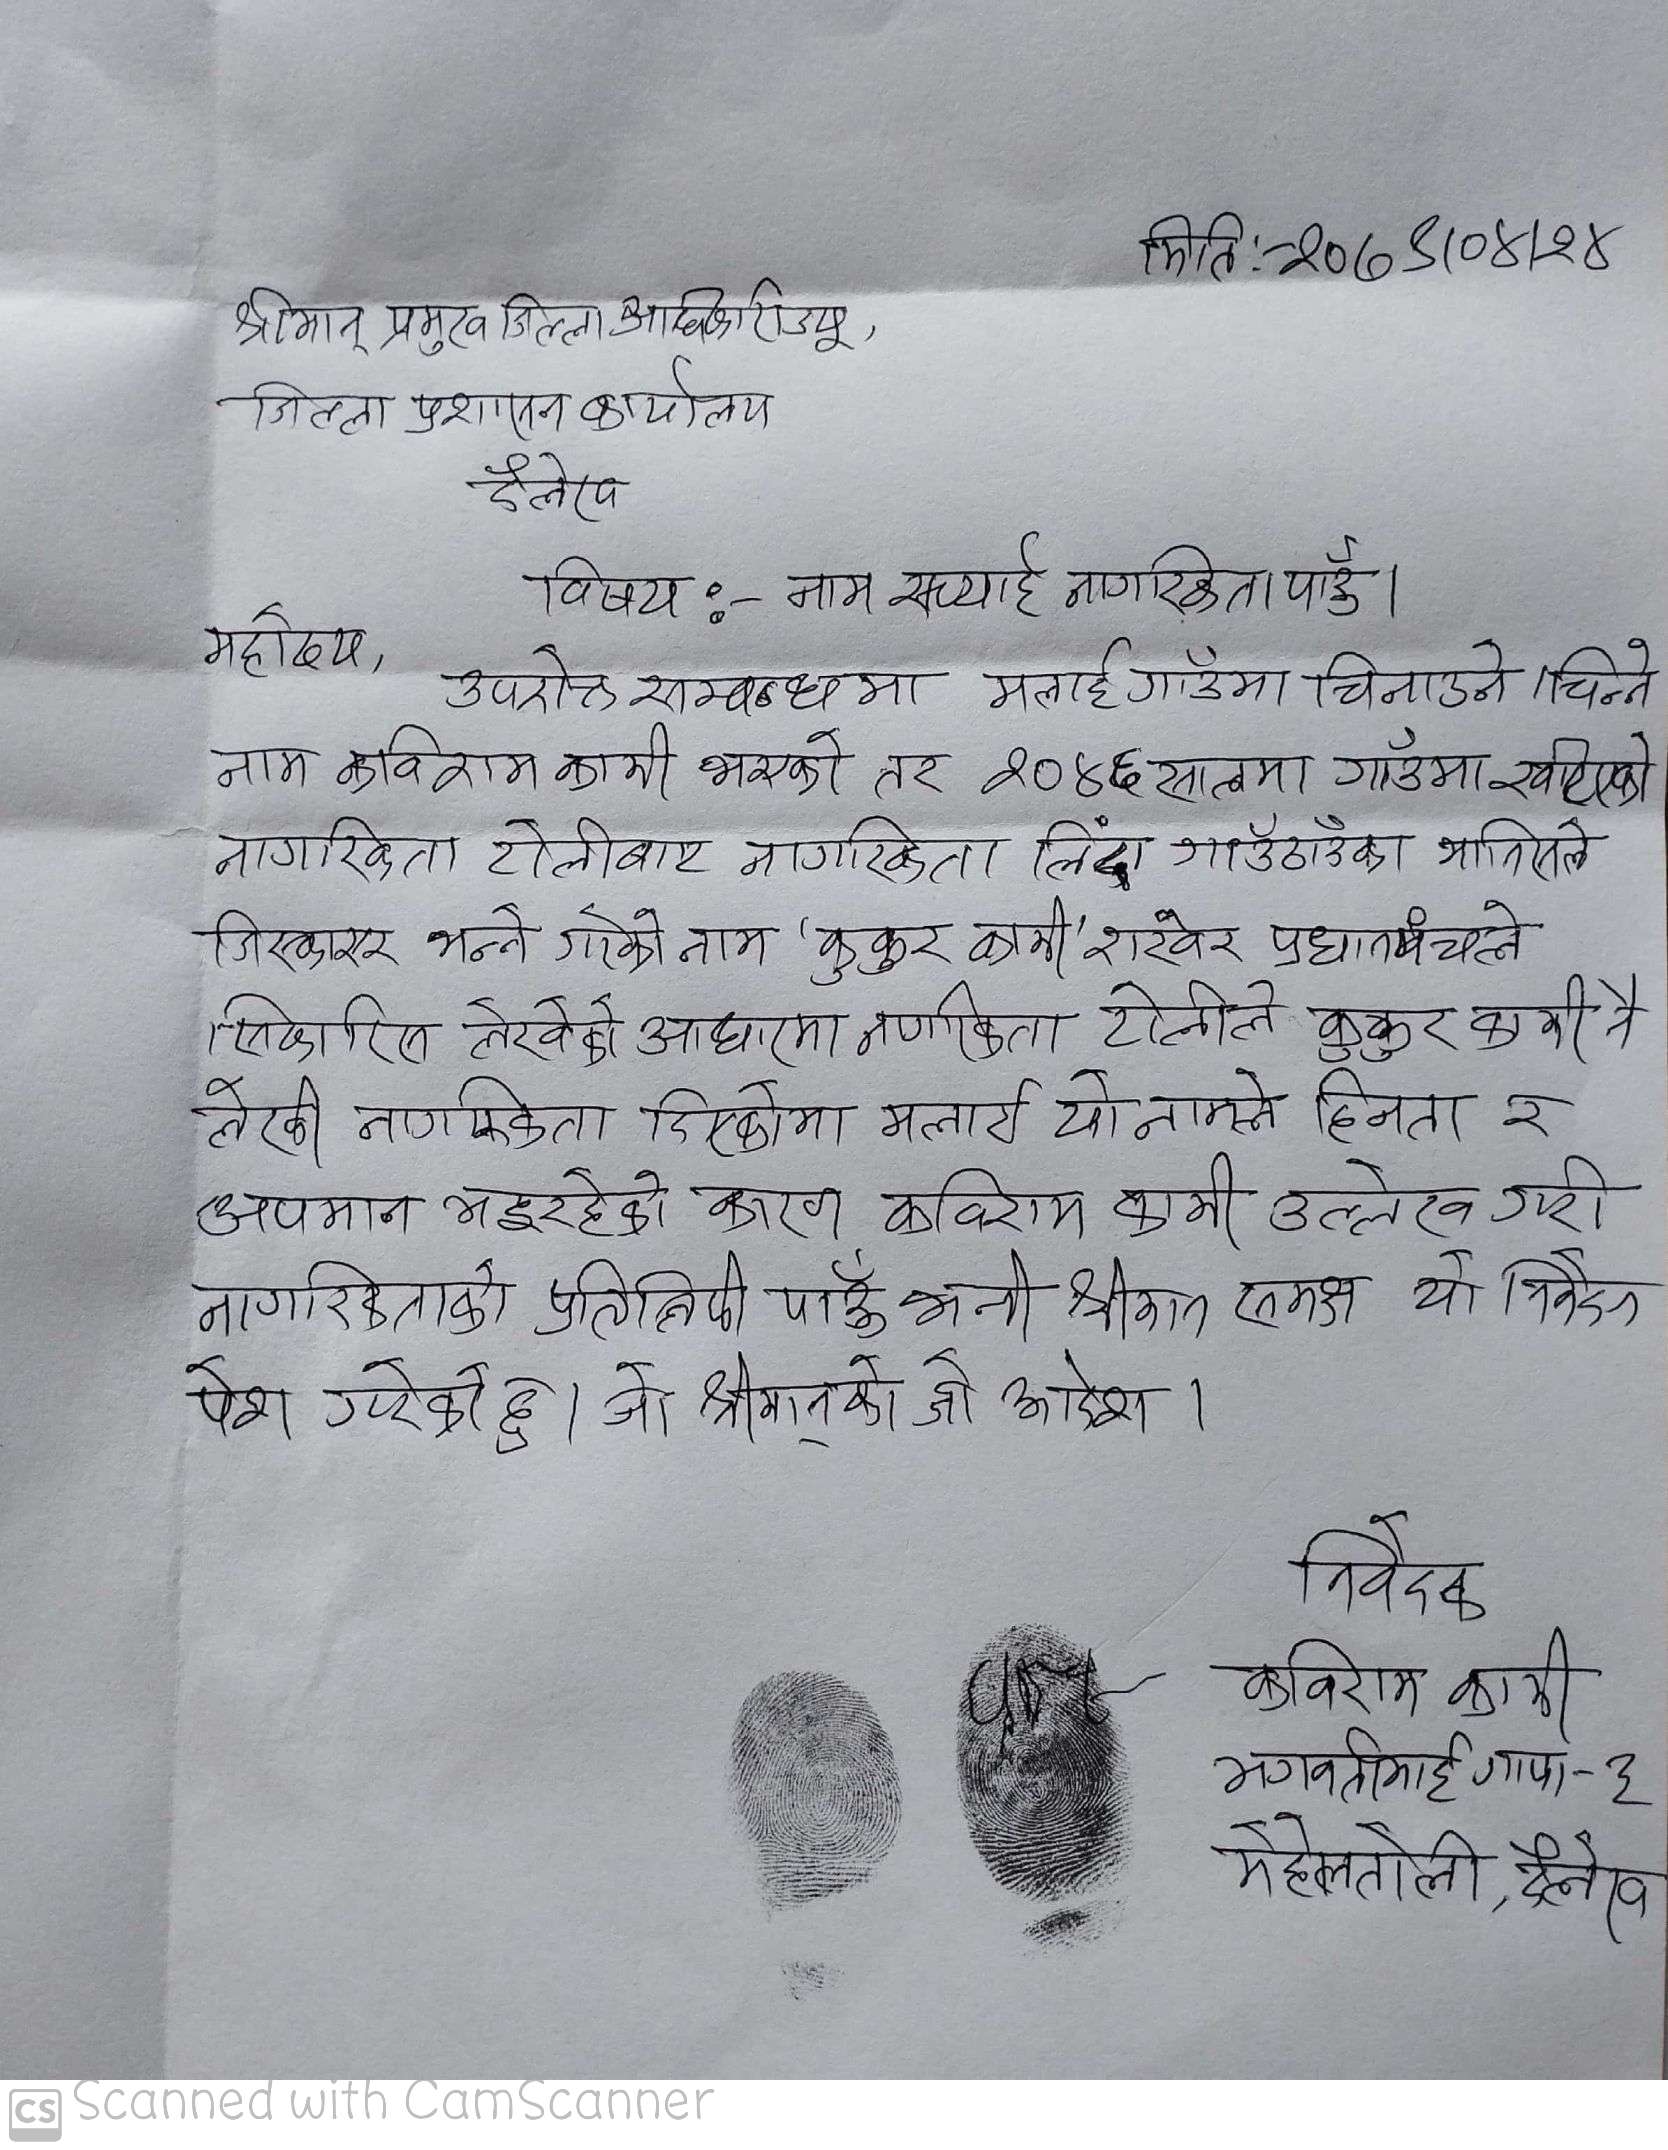 मिति:-२०७९।०४।२४
श्रीमान् प्रमुख जिल्ला अधिकारीज्यू,
जिल्ला प्रशासन कार्यालय
दैलेख
विषय :- नाम सच्याई नागरिकता पाउँ।
महोदय,
उपरोक्त सम्बन्धमा मलाई गाउँमा चिनाउने ।चिन्ने
नाम कविराम कामी भएको तर २०४६ सालमा गाउँमा खटिएको
नागरिकता टोलीबाट नागरिकता लिंदा गाउँठाउँका मानिसले
जिस्काएर भन्ने गरेको नाम 'कुकुर कामी' राखेर प्रधानपंचले
सिफारिस लेखेको आधारमा नागरिकता टोलीले कुकुर कामी नै
लेखी नागरिकता दिएकोमा मलाई यो नामले हिनता र
अपमान भइरहेको कारण कविराम कामी उल्लेख गरी
नागरिकताको प्रतिलिपी पाउँ भनी श्रीमान समक्ष यो निवेदन
पेश गरेको छु। जो श्रीमान्को जो आदेश ।
निवेदक
कविराम कामी
भगवतीमाई गापा-३
मेहेलतोली, दैलेख
CS Scanned with CamScanner